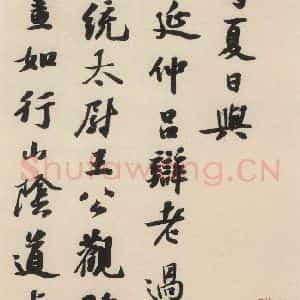 夏日與
延仲呂辯老過
統太尉王公觀
畫如行山陰道
Shufawang.CN